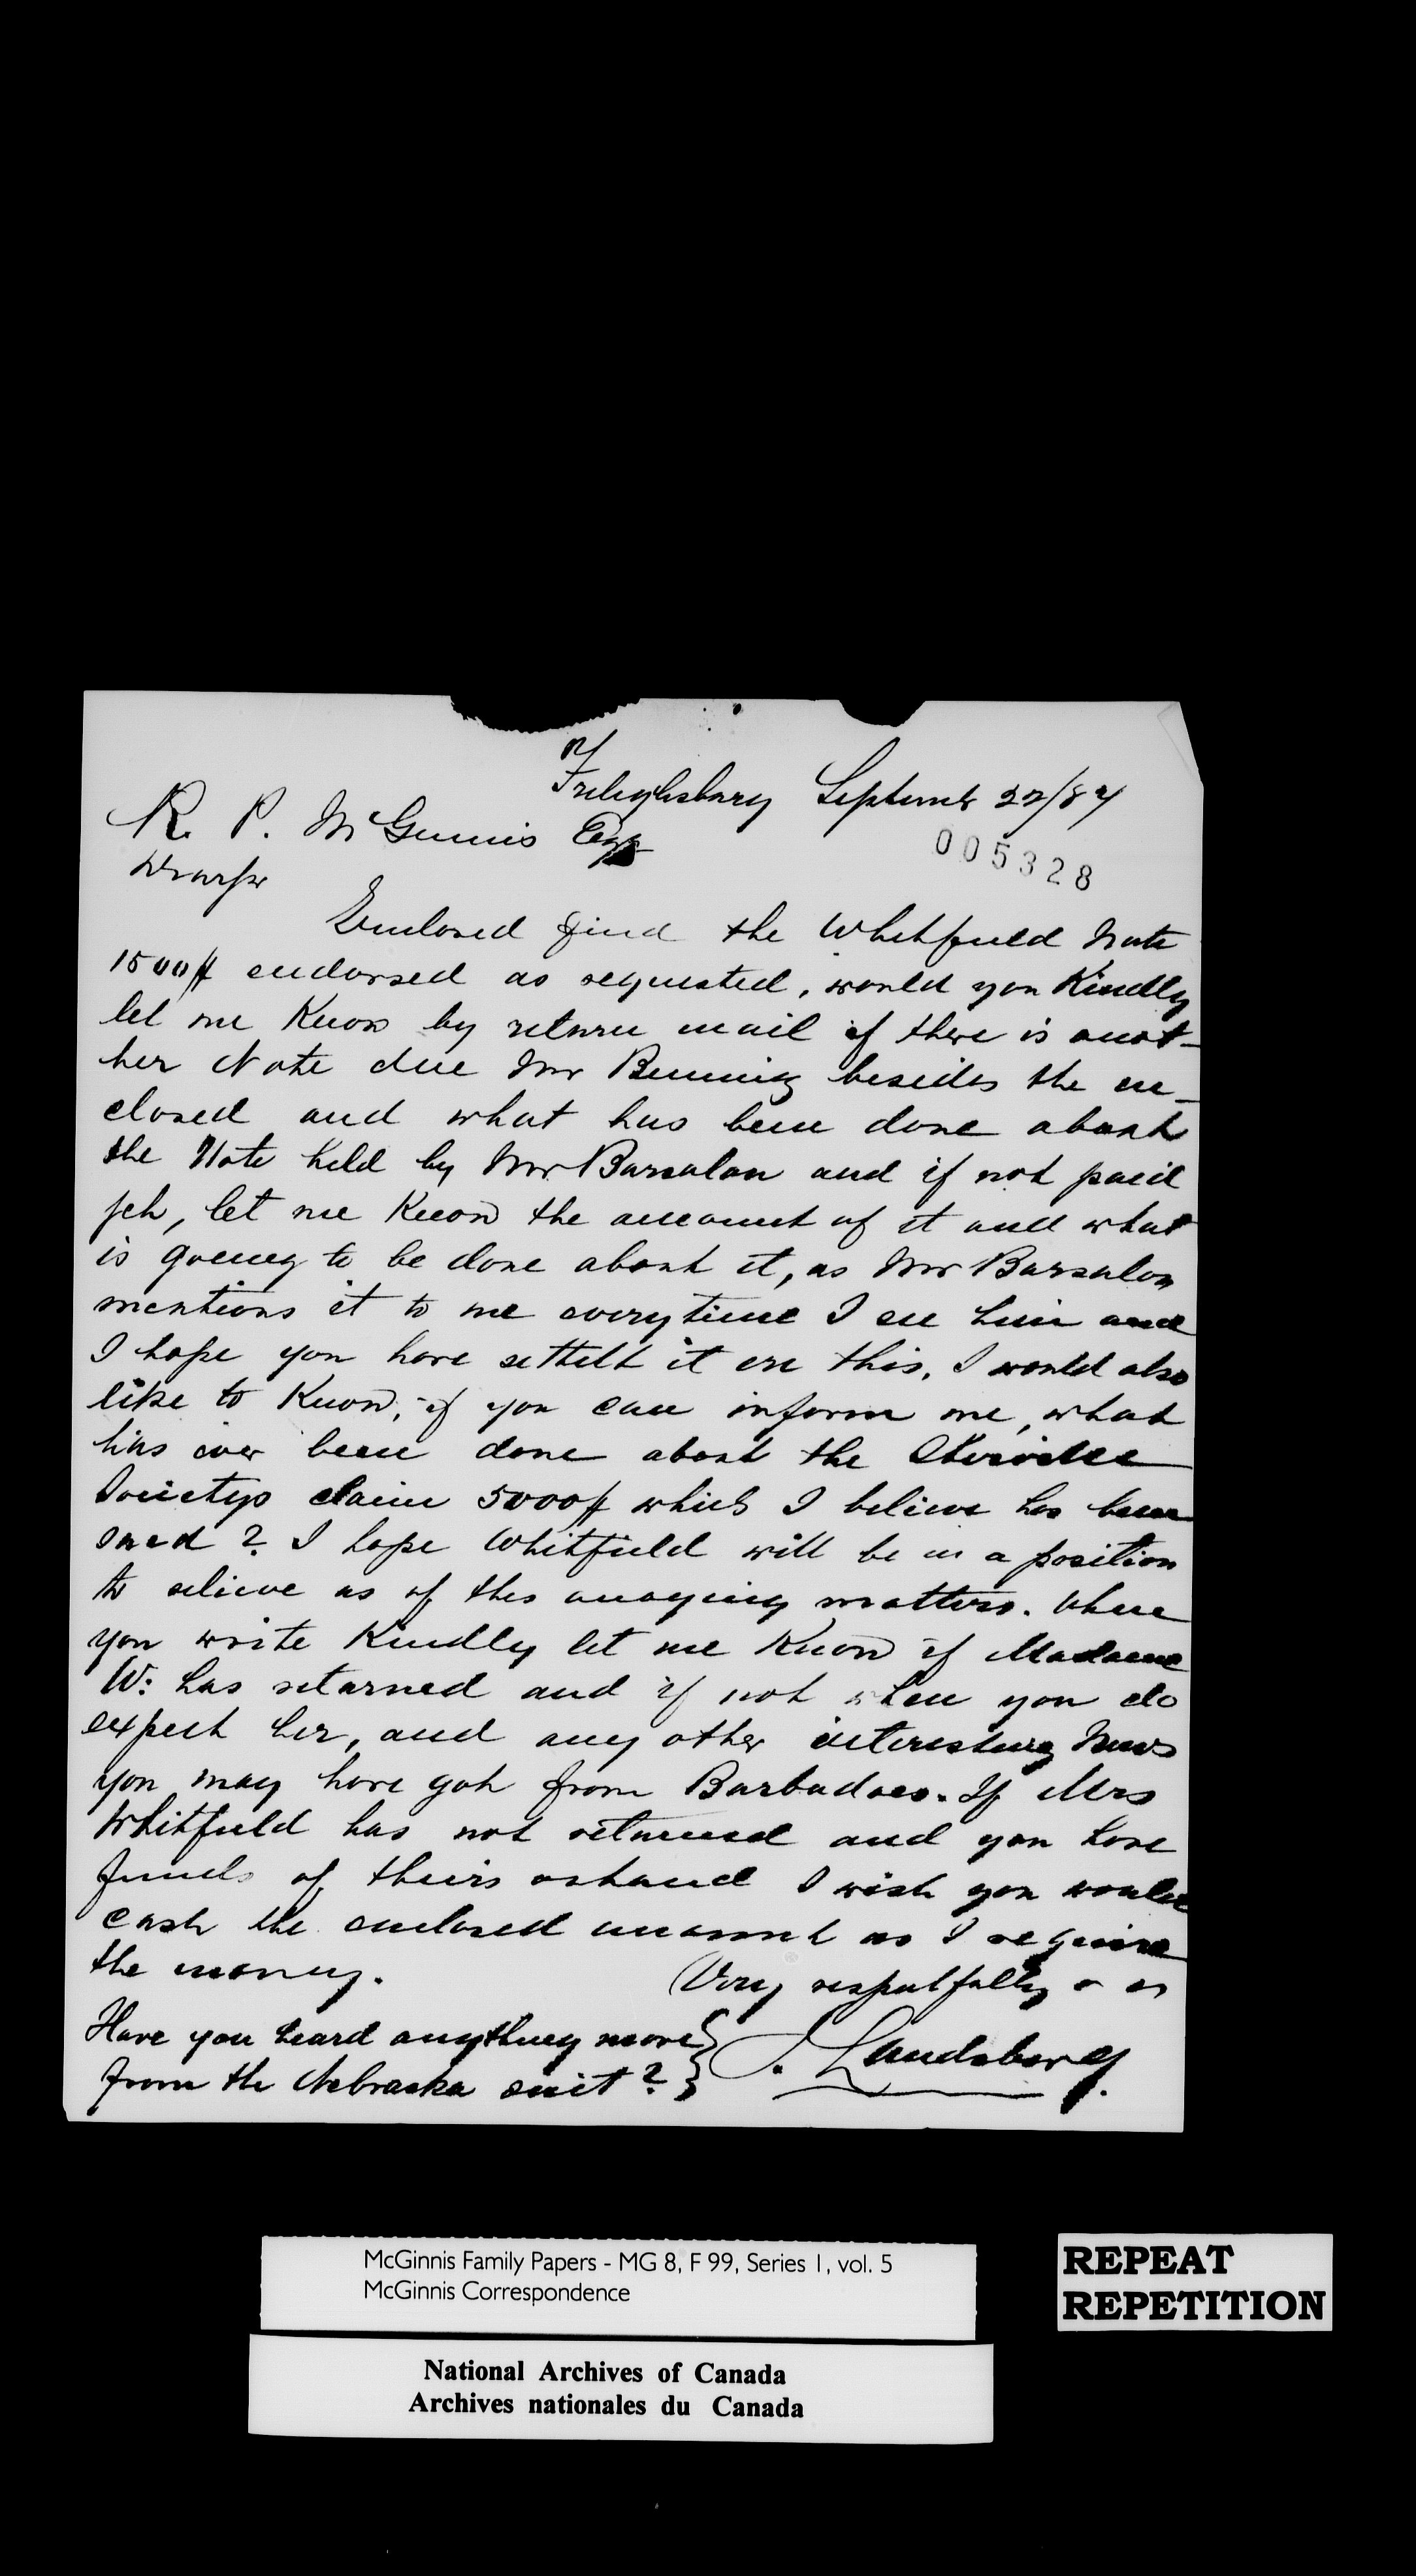 Frelighsburg Septemb 22/87
R. P. McGinnis Esqr
005328
Dear Sir
Enclosed find the Whitfield Note
1500$ endorsed as requested, would you Kindly
let me Know by return mail if there is anot-
her Note due Mr Benning besides the en-
closed and what has been done about
the Note held by Mr Barsalou and if not paid
yet, let me Know the amount of it and what
is going to be done about it, as Mr Barsalou
mentions it to me everytime I see him and
I hope you have settelt it ere this. I would also
like to Know, if you can inform me, what
has ever been done about the
Societys claim 5000$ which I believe has been
sued? I hope Whitfield will be in a position
to relieve us of this anoying matters. When
you write Kindly let me Know if Madame
W: has returned and if not when you do
expect her, and any other interesting News
you may have got from Barbadoes. If Mrs
Whitfield has not returned and you have
funds of theirs onhand I wish you would
cash the enclosed amount as I require
the money.
Very respectfully
Have you heard anything more
from the Nebraska suit?
Landsberg.
McGinnis Family Papers - MG 8, F 99, Series 1, vol. 5
McGinnis Correspondence
REPEAT
REPETITION
National Archives of Canada
Archives nationales du Canada